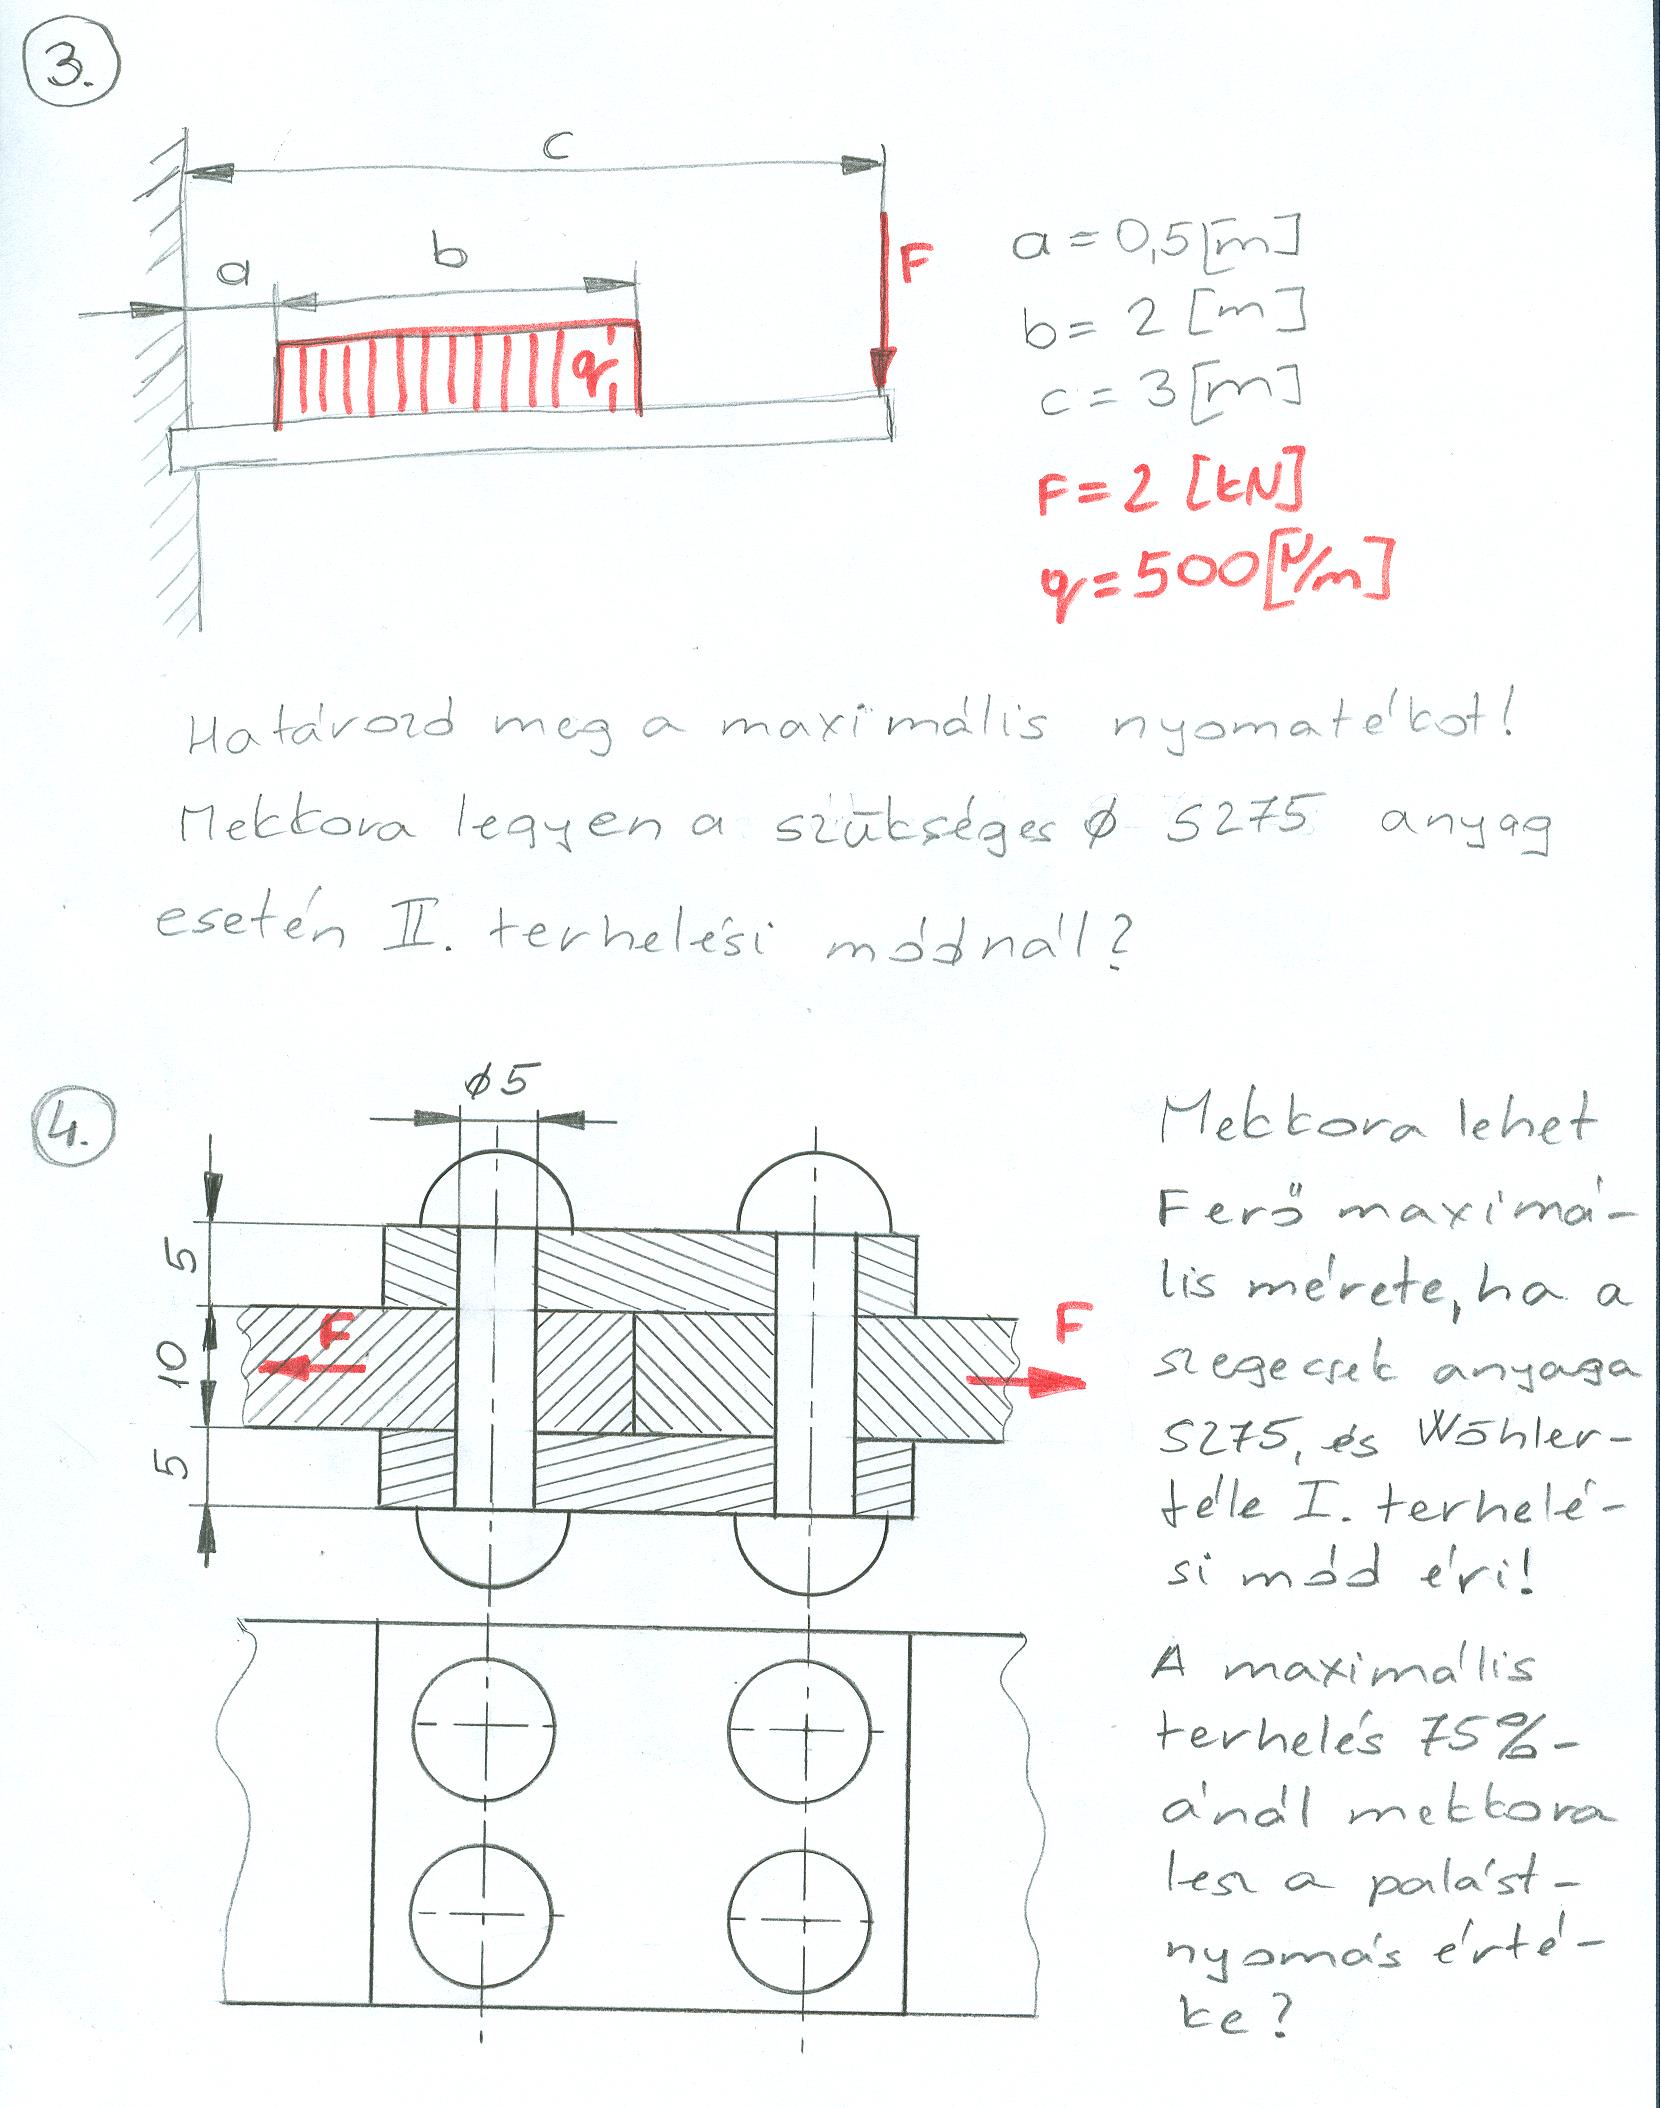 3.
c
a
b
F
q
a = 0,5 [m]
b = 2 [m]
c = 3 [m]
F = 2 [kN]
q = 500 [N/m]
Határozd meg a maximális nyomatékot!
Mekkora legyen a szükséges ø S275 anyag
esetén II. terhelési módnál?
4.
ø5
5
10
5
F
F
Mekkora lehet
F erő maximá-
lis mérete, ha a
szegecsek anyaga
S275, és Wöhler-
féle I. terhelé-
si mód éri!
A maximális
terhelés 75%-
ánál mekkora
lesz a palást-
nyomás érté-
ke?